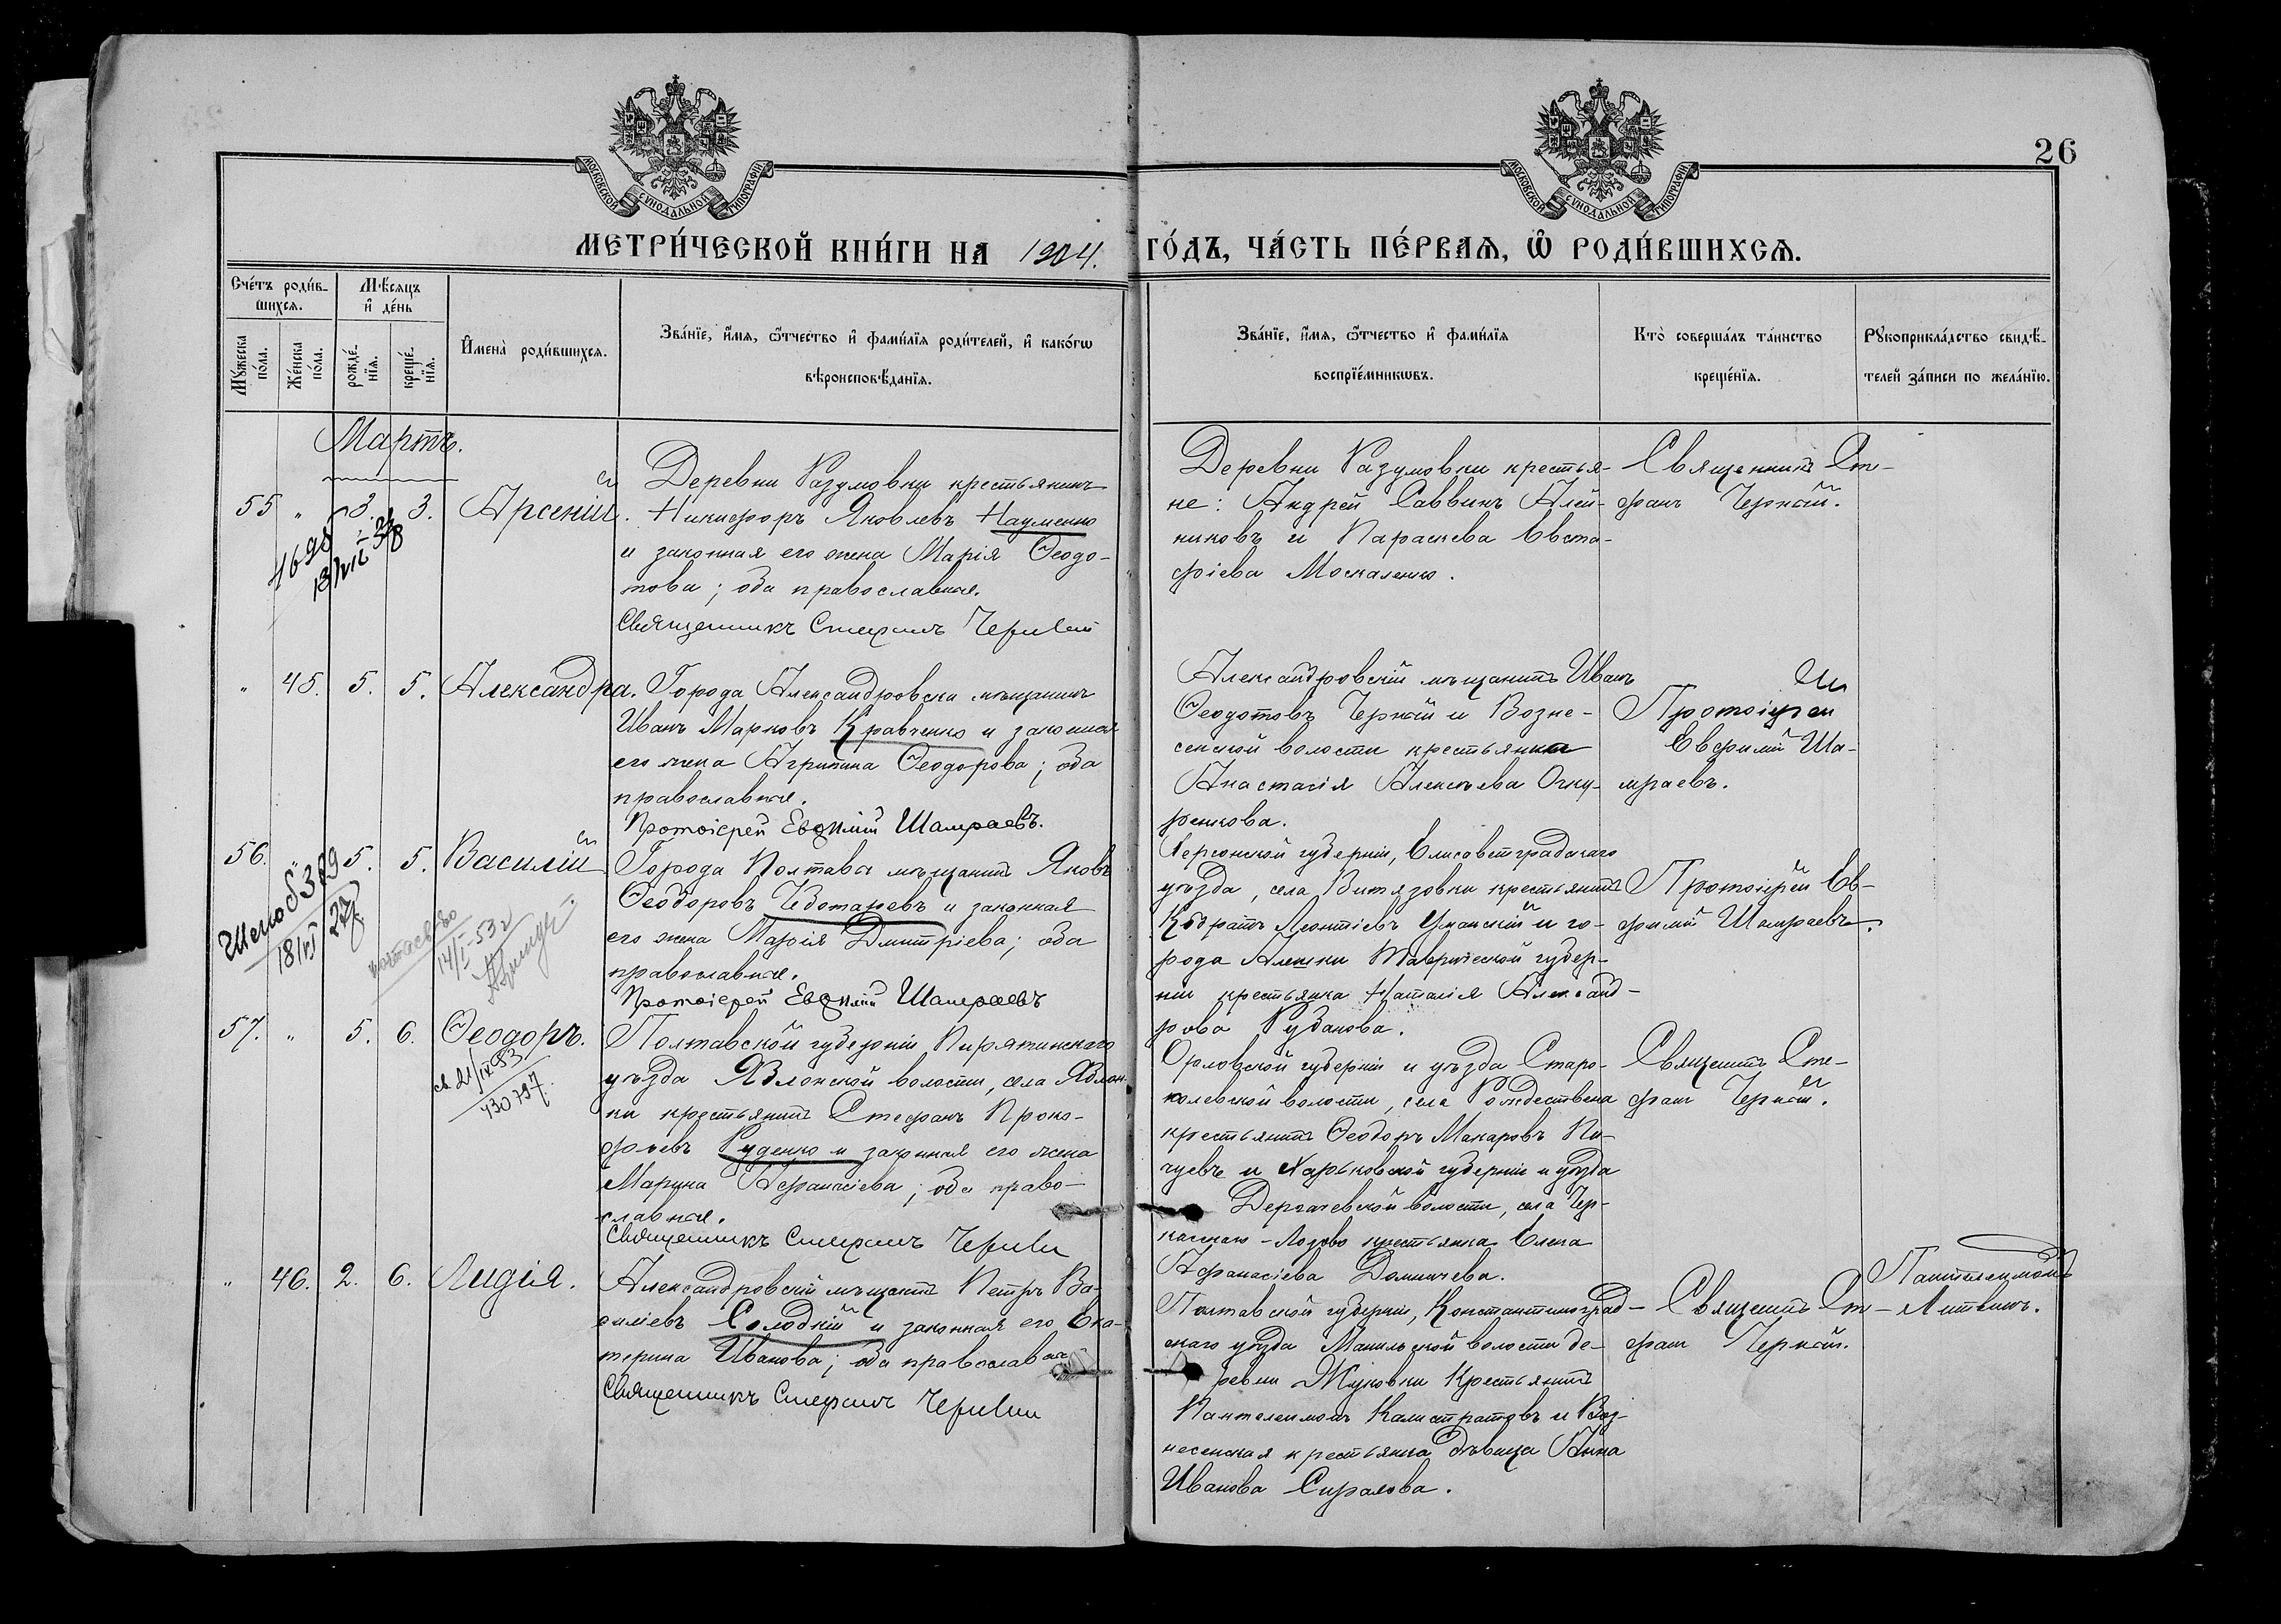 26
МОСКОВСКОЙ СѴНОДАЛЬНОЙ ТИПОГРАФІИ
МОСКОВСКОЙ СѴНОДАЛЬНОЙ ТИПОГРАФІИ
МЕТРИ́ЧЕСКОЙ КНИ́ГИ НА 1904. ГО́ДЪ, ЧА́СТЬ ПЕ́РВАЯ, Ѡ РОДИ́ВШИХСЯ.
Сче́тъ роди́в-
шихся.
Мѣ́сяцъ
и де́нь
Му́жеска
по́ла.
Же́нска
по́ла.
рожде́-
нїя.
креще́-
нїя.
Имена̀ роди́вшихся.
Зва́нїе, и́мя, ѻ҆́тчество и фами́лїя роди́телей, и како́гѡ
вѣроисповѣ́данїя.
Зва́нїе, и́мя, ѻ҆́тчество и фами́лїя
воспрїе́мникѡвъ.
Кто̀ соверша́лъ та́инство
креще́нїя.
Рукоприкла́дство свидѣ́-
телей за́писи по жела́нїю.
Мартъ.
55 " 3. 3. Арсеній.
Деревни Разумовки крестьянинъ
Никифоръ Яковлевъ Науменко
и законная его жена Марія Ѳеодо-
това; оба православные.
Священникъ Стефанъ Черный
Деревни Разумовки крестья-
не: Андрей Саввинъ Алей-
никовъ и Параскева Евста-
фіева Москаленко.
Священникъ Сте-
фанъ Черный.
" 45. 5. 5. Александра.
Города Александровска мѣщанинъ
Иванъ Марковъ Кравченко и законная
его жена Агрипина Ѳеодорова; оба
православные.
Протоіерей Евѳимій Шамраевъ.
Александровскій мѣщанинъ Иванъ
Ѳеодотовъ Черный и Возне-
сенской волости крестьянка
Анастасія Алексѣева Очку-
ренкова.
Протоіерей
Евфимій Ша-
мраевъ.
56. " 5. 5. Василій
Города Полтавы мѣщанинъ Яковъ
Ѳеодоровъ Чеботаревъ и законная
его жена Марія Димитріева; оба
православные.
Протоіерей Евѳимій Шамраевъ
Херсонской губерніи, Елисаветградскаго
уѣзда, села Витязовки крестьянинъ
Кодратъ Леонтіевъ Уманскій и го-
рода Алешки Таврической губер-
ніи крестьянка Наталія Александ-
рова Рубанова.
Протоіерей Ев-
фимій Шамраевъ.
57. " 5. 6. Ѳеодоръ.
св 21/IX 53
430797.
Полтавской губерніи Пирятинскаго
уѣзда Яблонской волости, села Яблон-
ки крестьянинъ Стефанъ Проко-
фьевъ Руденко и законная его жена
Марина Афанасіева; оба право-
славные.
Священникъ Стефанъ Черный
Орловской губерніи и уѣзда Старо-
колевской волости, села Рождествена
крестьянинъ Ѳеодоръ Макаровъ Пи-
чуевъ и Харьковской губерніи и уѣзда
Дергачевской волости, села Чер-
каскаго-Лозово крестьянка Елена
Афанасіева Домничева.
Священникъ Сте-
фанъ Черный.
" 46. 2. 6. Лидія.
Александровскій мѣщанинъ Петръ Ва-
силіевъ Солодкій и законная его Ека-
терина Иванова; оба православные
Священникъ Стефанъ Черный
Полтавской губерніи, Константиноград-
скаго уѣзда Манильской волости де-
ревни Жуковки крестьянинъ
Пантелеимонъ Калистратовъ и Воз-
несенская крестьянка дѣвица Анна
Иванова Сиралова.
Священникъ Сте-
фанъ Черный.
Пантелеимонъ
Литвинъ.